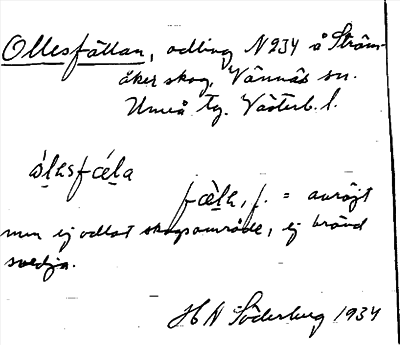 Ollesfällan, odling N 234 å Ström-
åker skog, Vännäs sn.
Umeå tg. Västerb. l.
ò̱lesfǽla
fæ̀la, f. = avröjt
men ej odlat skogsområde, ej bränd
svedja.
H A Söderberg 1934